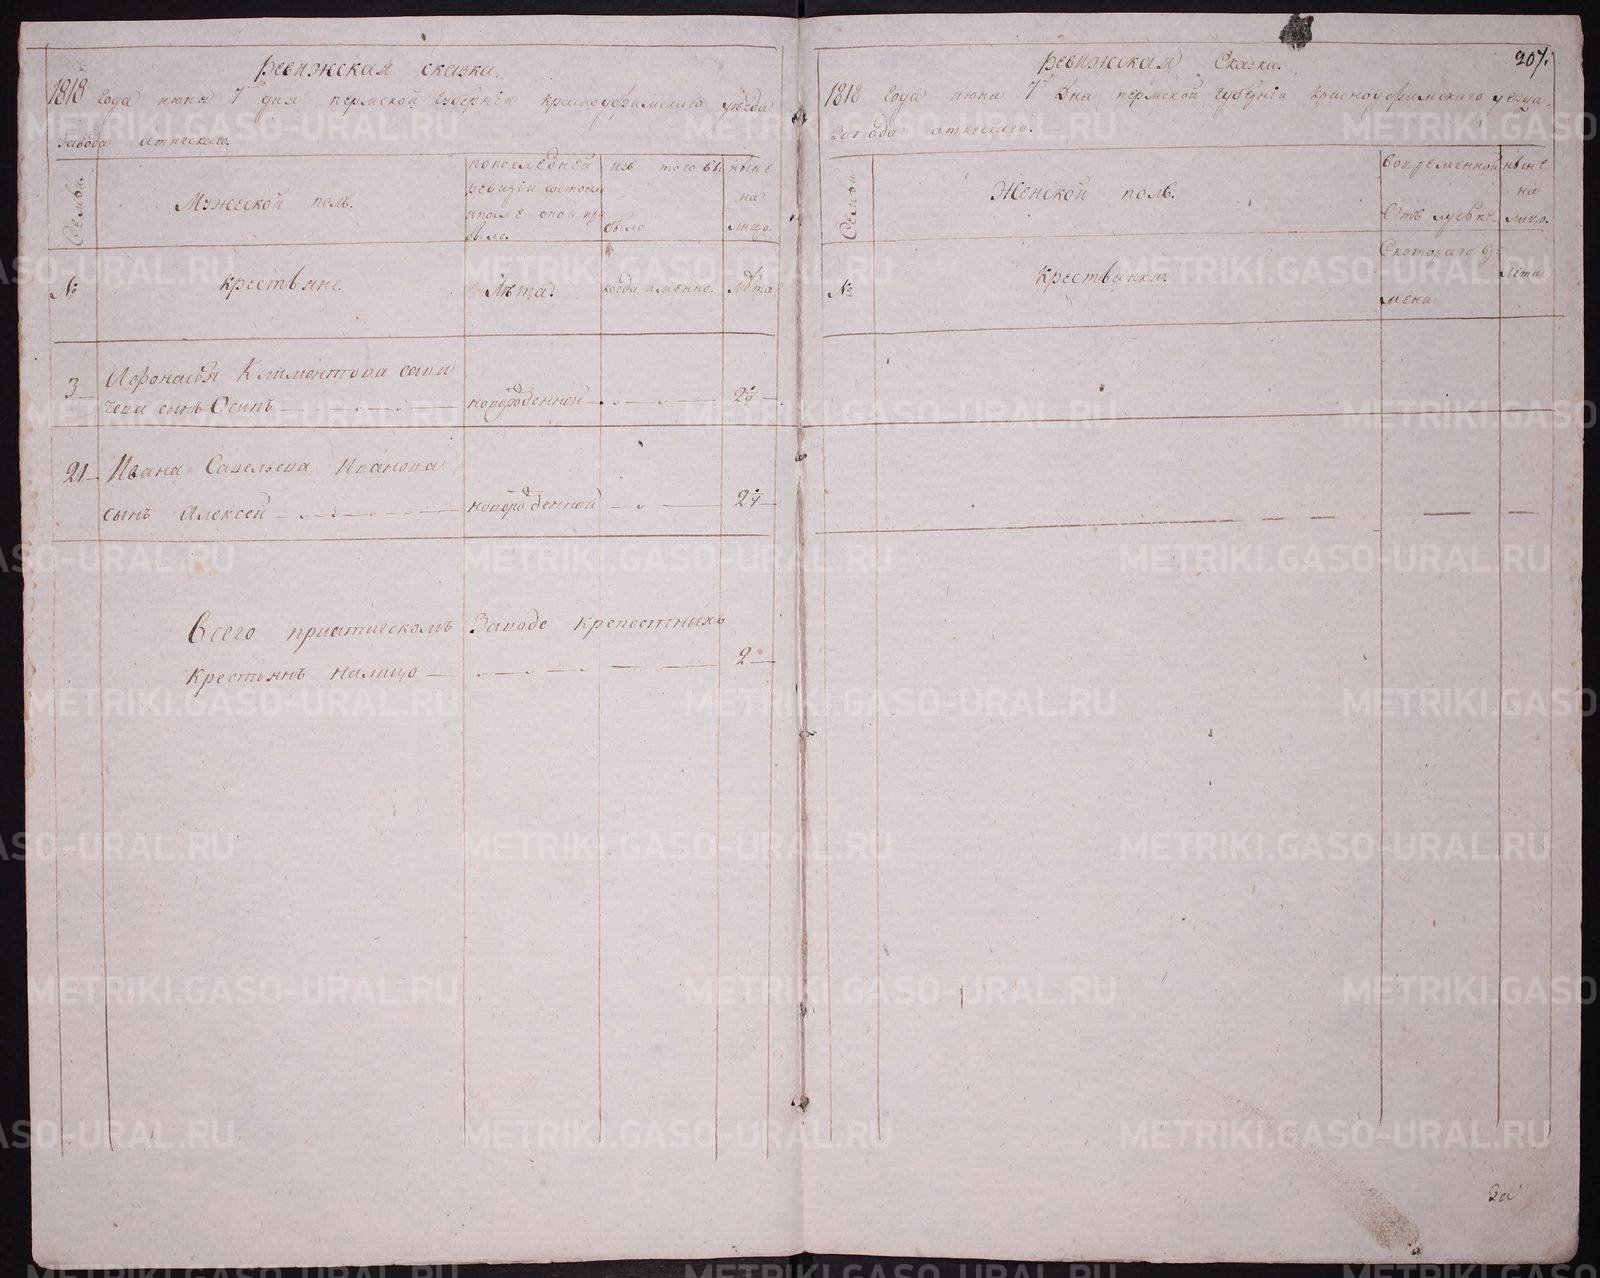 Ревижская сказка.
1818 года июня 7 дня пермской губернїи красноуфимского уѣзда
завода атигскаго.
Семьи.
Мужеской полъ.
попоследней
ревизїи состояло
ипосле оной при
было.
изъ того вы
было
ныне
на
лицо.
№
крестьяне.
Лѣта.
когда именно.
Лѣта
3
Афонасья Климонтова сави
чева сынъ Осипъ
новорожденной
2
21
Ивана Савельева Иванова
сынъ Алексей
новорожденной
2
Всего приатигскомъ Заводе крепостныхъ
крестьянъ налицо
2
Ревижская Сказка.
207.
1818 года июня 7 дня пермской губернїи красноуфимскаго уезда.
завода атигскаго.
Семьи
Женской полъ.
вовременной
Отъ лучьке
ныне
на
лицо.
№
крестьянки.
Скотораго вре
мени
Лета
За
METRIKI.GASO-URAL.RU